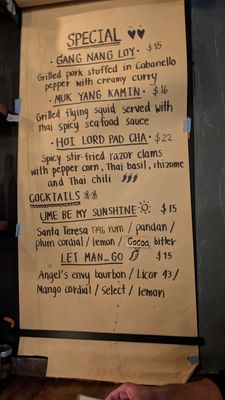 SPECIAL
· GANG NANG LOY · $15
Grilled pork stuffed in Cabanello
pepper with creamy curry
· MUK YANG KAMIN · $16
Grilled flying squid served with
Thai spicy seafood sauce
· HOI LORD PAD CHA · $22
Spicy stir-fried razor clams
with pepper corn, Thai basil, rhizome
and Thai chili
COCKTAILS
UME BE MY SUNSHINE $15
Santa Teresa 1796 rum / pandan /
plum cordial / lemon / Cocoa bitter
LET MAN_GO $15
Angel's envy bourbon / Licor 43 /
Mango cordial / Select / lemon